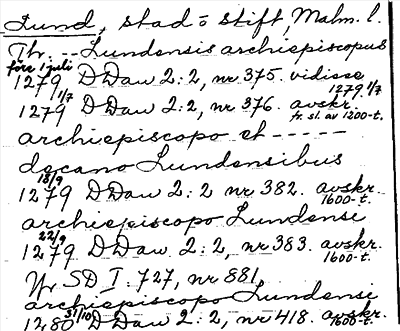 Lund, stad o stift, Malm. l.
Th. -- Lundensis archiepiscopus
före 1 juli
1279 DDan 2:2, nr 375. vidisse
1279 1/7
1279 1/7 DDan 2:2, nr 376. avskr.
fr. sl. av 1200-t.
archiepiscopo et -----
decano Lundensibus
1279 18/9 DDan 2:2 nr 382. avskr.
1600-t.
archiepiscopo Lundensi
1279 22/9 DDan 2:2, nr 383. avskr.
1600-t.
Jfr SD I. 727, nr 881.
archiepiscopo Lundensi
1280 31/10 DDan 2:2, nr 418. avskr.
1600-t.